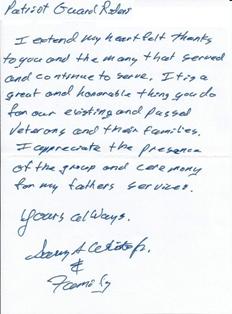 Patriot Guard Riders
I extend my heartfelt thanks
to you and the many that served
and continue to serve. It is a
great and honorable thing you do
for our existing and passed
veterans and their families.
I appreciate the presence
of the group and ceremony
for my fathers services.
Yours always.
&
Family